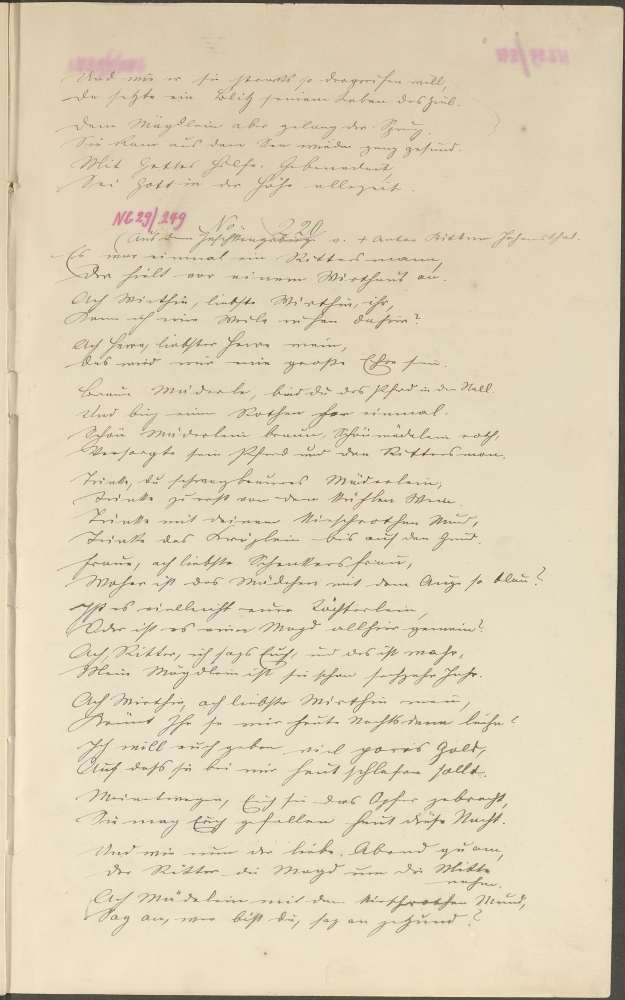 Und wie er sie packts so dergreifen will,
Da setzte ein Blitz seinem Leben das Ziel.
Dem Mägdlein aber gelang der Sprung.
Sie kam aus dem See wieder ganz gesund.
Mit Gottes Hülfe. Gebenedeit,
Sei Gott in der Höhe allezeit.
NG 29/249
No 220
(Aus dem v. + Anton Ritter
Es war einmal ein Rittersmann,
Der hielt vor einem Wirthaus an.
Ach Wirthin, liebste Wirthin, ihr,
Kann ich eine Weile ruhen dahier?
Ach Herre, liebster Herre mein,
Das wird mir eine große Ehre sein.
Braun Mäderle, bind du das Pferd in den Stall.
Und bring ein Rothen her einmal.
Schön Mäderlein braun, Schönmädelein roth,
Versorgte sein Pferd und den Rittersmann.
Trinke, du schwarzbraunes Mäderlein,
Trinke zu erst von dem kühlen Wein
Trinke mit deinem kirschrothen Mund,
Trinke das Krüglein bis auf den Grund.
Fraue, ach liebste Schenkersfrau,
Woher ist das Mädchen mit dem Auge so blau?
Ist es vielleicht euer Töchterlein,
Oder ist es eine Magd allhier gemein?
Ach, Ritter, ich sags Euch, und das ist wahr,
Mein Mägdlein ist sie schon sechzehn Jahr.
Ach Wirthin, ach liebste Wirthin mein,
Könnt Ihr sie mir heute Nacht denn leihn?
Ich will euch geben viel Gold,
Auf daß sie bei mir heut schlafen sollt.
Meinetwegen, Euch sei das Opfer gebracht,
Sie mag Euch gefallen heut diese Nacht.
Und wie nun der liebe Abend kam,
Der Ritter die Magd um die Mitte
nahm.
Ach Mädelein mit dem kirschrothen Mund,
Sag an, wer bist du, sag an jetzund?